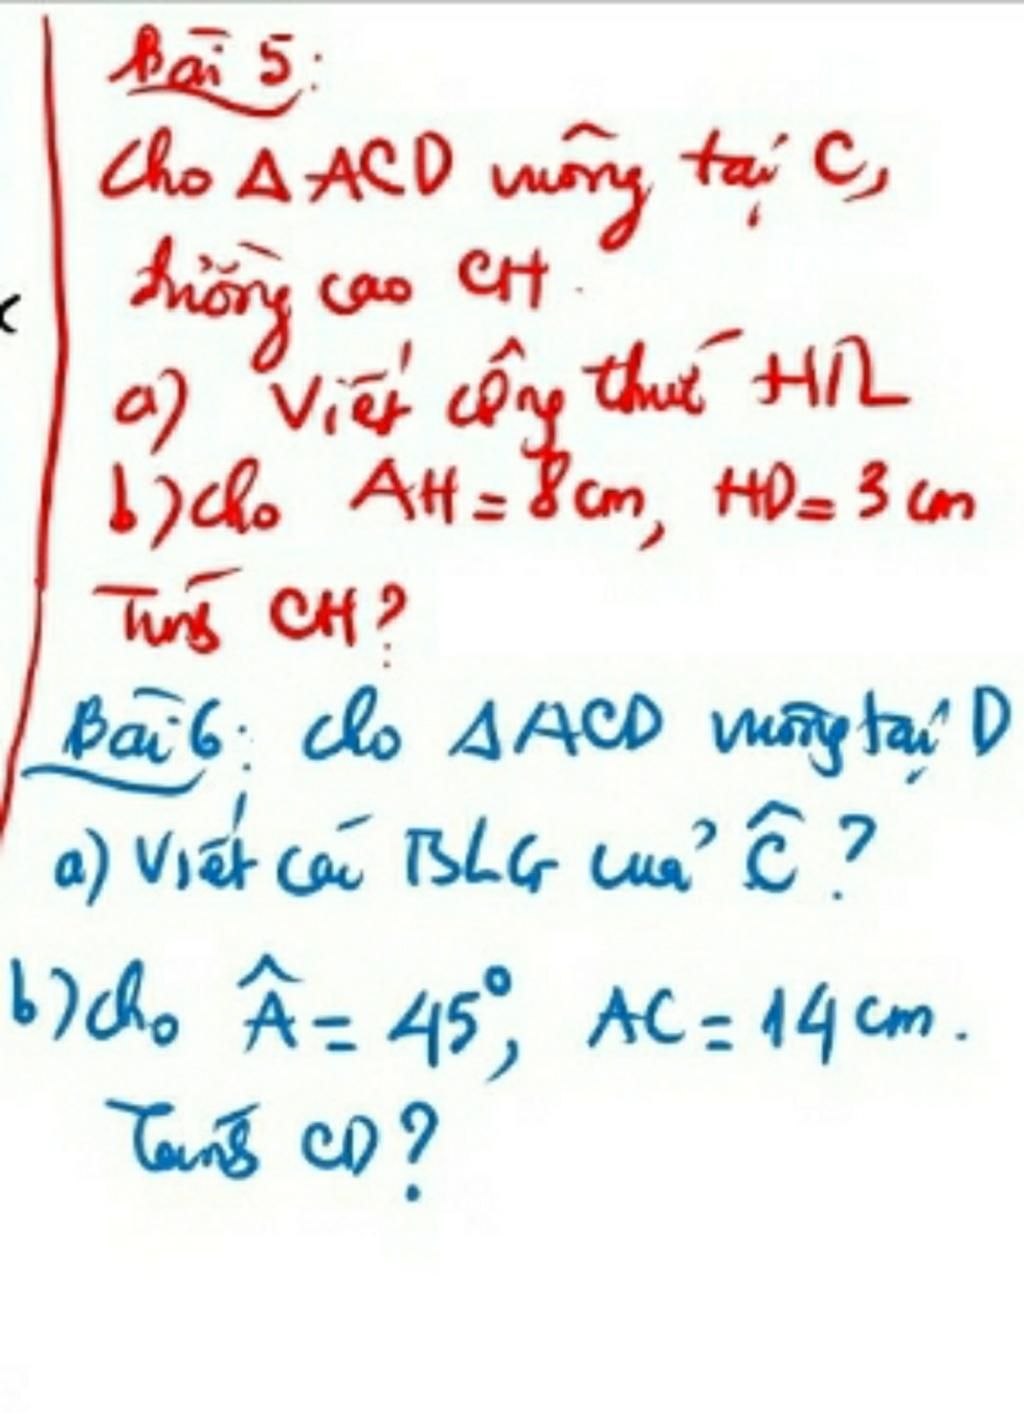 Bài 5:
Cho Δ ACD vuông tại C,
đường cao CH.
a) Viết công thức HTL
b) Cho AH = 8 cm, HD = 3 cm
Tính CH?
Bài 6: Cho Δ ACD vuông tại D
a) Viết các TSLG của Ĉ?
b) Cho Â = 45°, AC = 14 cm.
Tính CD?